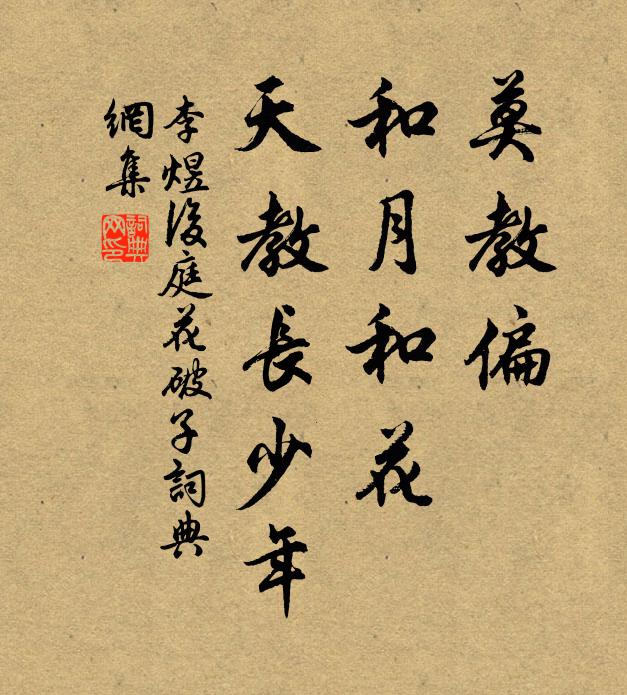 莫教偏
和月和花
天教長少年
李煜後庭花破子詞典
網集
詞典
网印